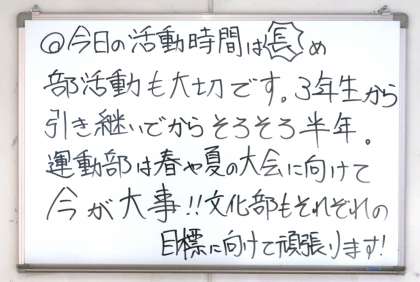 @今日の活動時間は長め
部活動も大切です。3年生から
引き継いでからそろそろ半年。
運動部は春や夏の大会に向けて
今が大事!!文化部もそれぞれの
目標に向けて頑張ります!